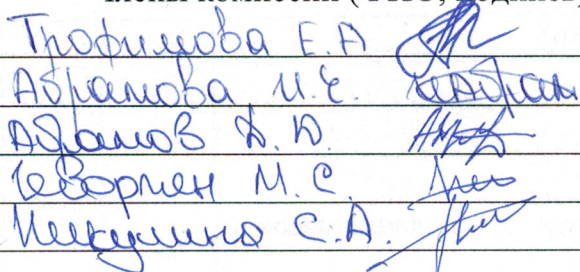 Трофимова Е.А
Абрамова И.Е.
Абрамов Д.Ю.
Геворгян М.С.
Никулина С.А.